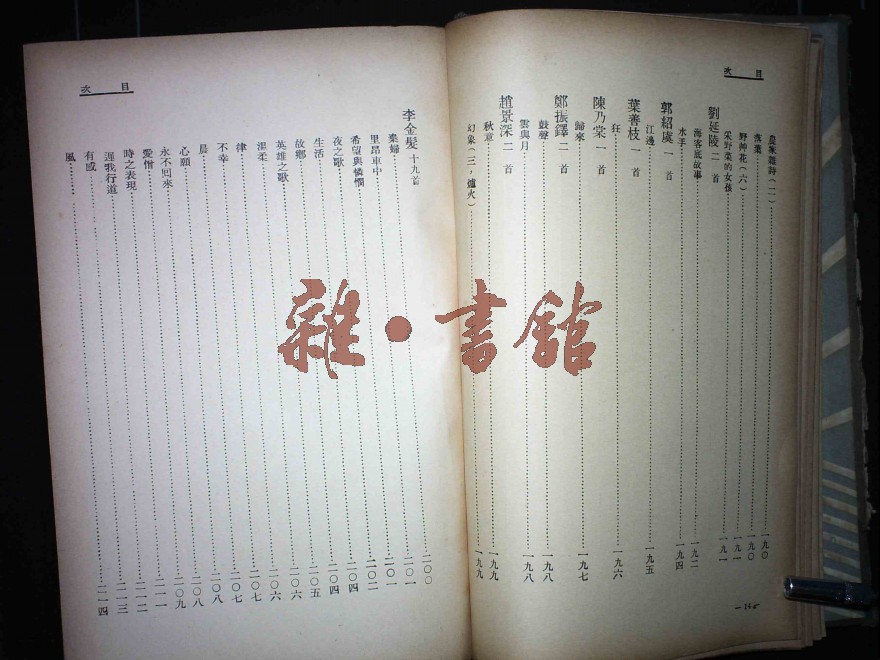 目次
農家雜詩(二)……一九〇
落葉……一九〇
野艸花(六)……一九一
采野菜的女孩……一九一
劉延陵 二首
海客底故事……一九二
水手……一九四
郭紹虞 一首
江邊……一九五
葉善枝 一首
狂……一九六
陳乃棠 一首
歸來……一九七
鄭振鐸 二首
鼓聲……一九八
雲與月……一九八
趙景深 二首
秋意……一九九
幻象(三,爐火)……一九九
目次
李金髮 十九首
棄婦……二〇〇
里昂車中……二〇一
希望與憐憫……二〇一
夜之歌……二〇二
生活……二〇四
故鄉……二〇四
英雄之歌……二〇五
溫柔……二〇六
律……二〇六
不幸……二〇七
晨……二〇七
心願……二〇八
永不回來……二〇八
愛憎……二〇九
時之表現……二一一
遲我行道……二一二
有感……二一三
風……二一四
雜·書館